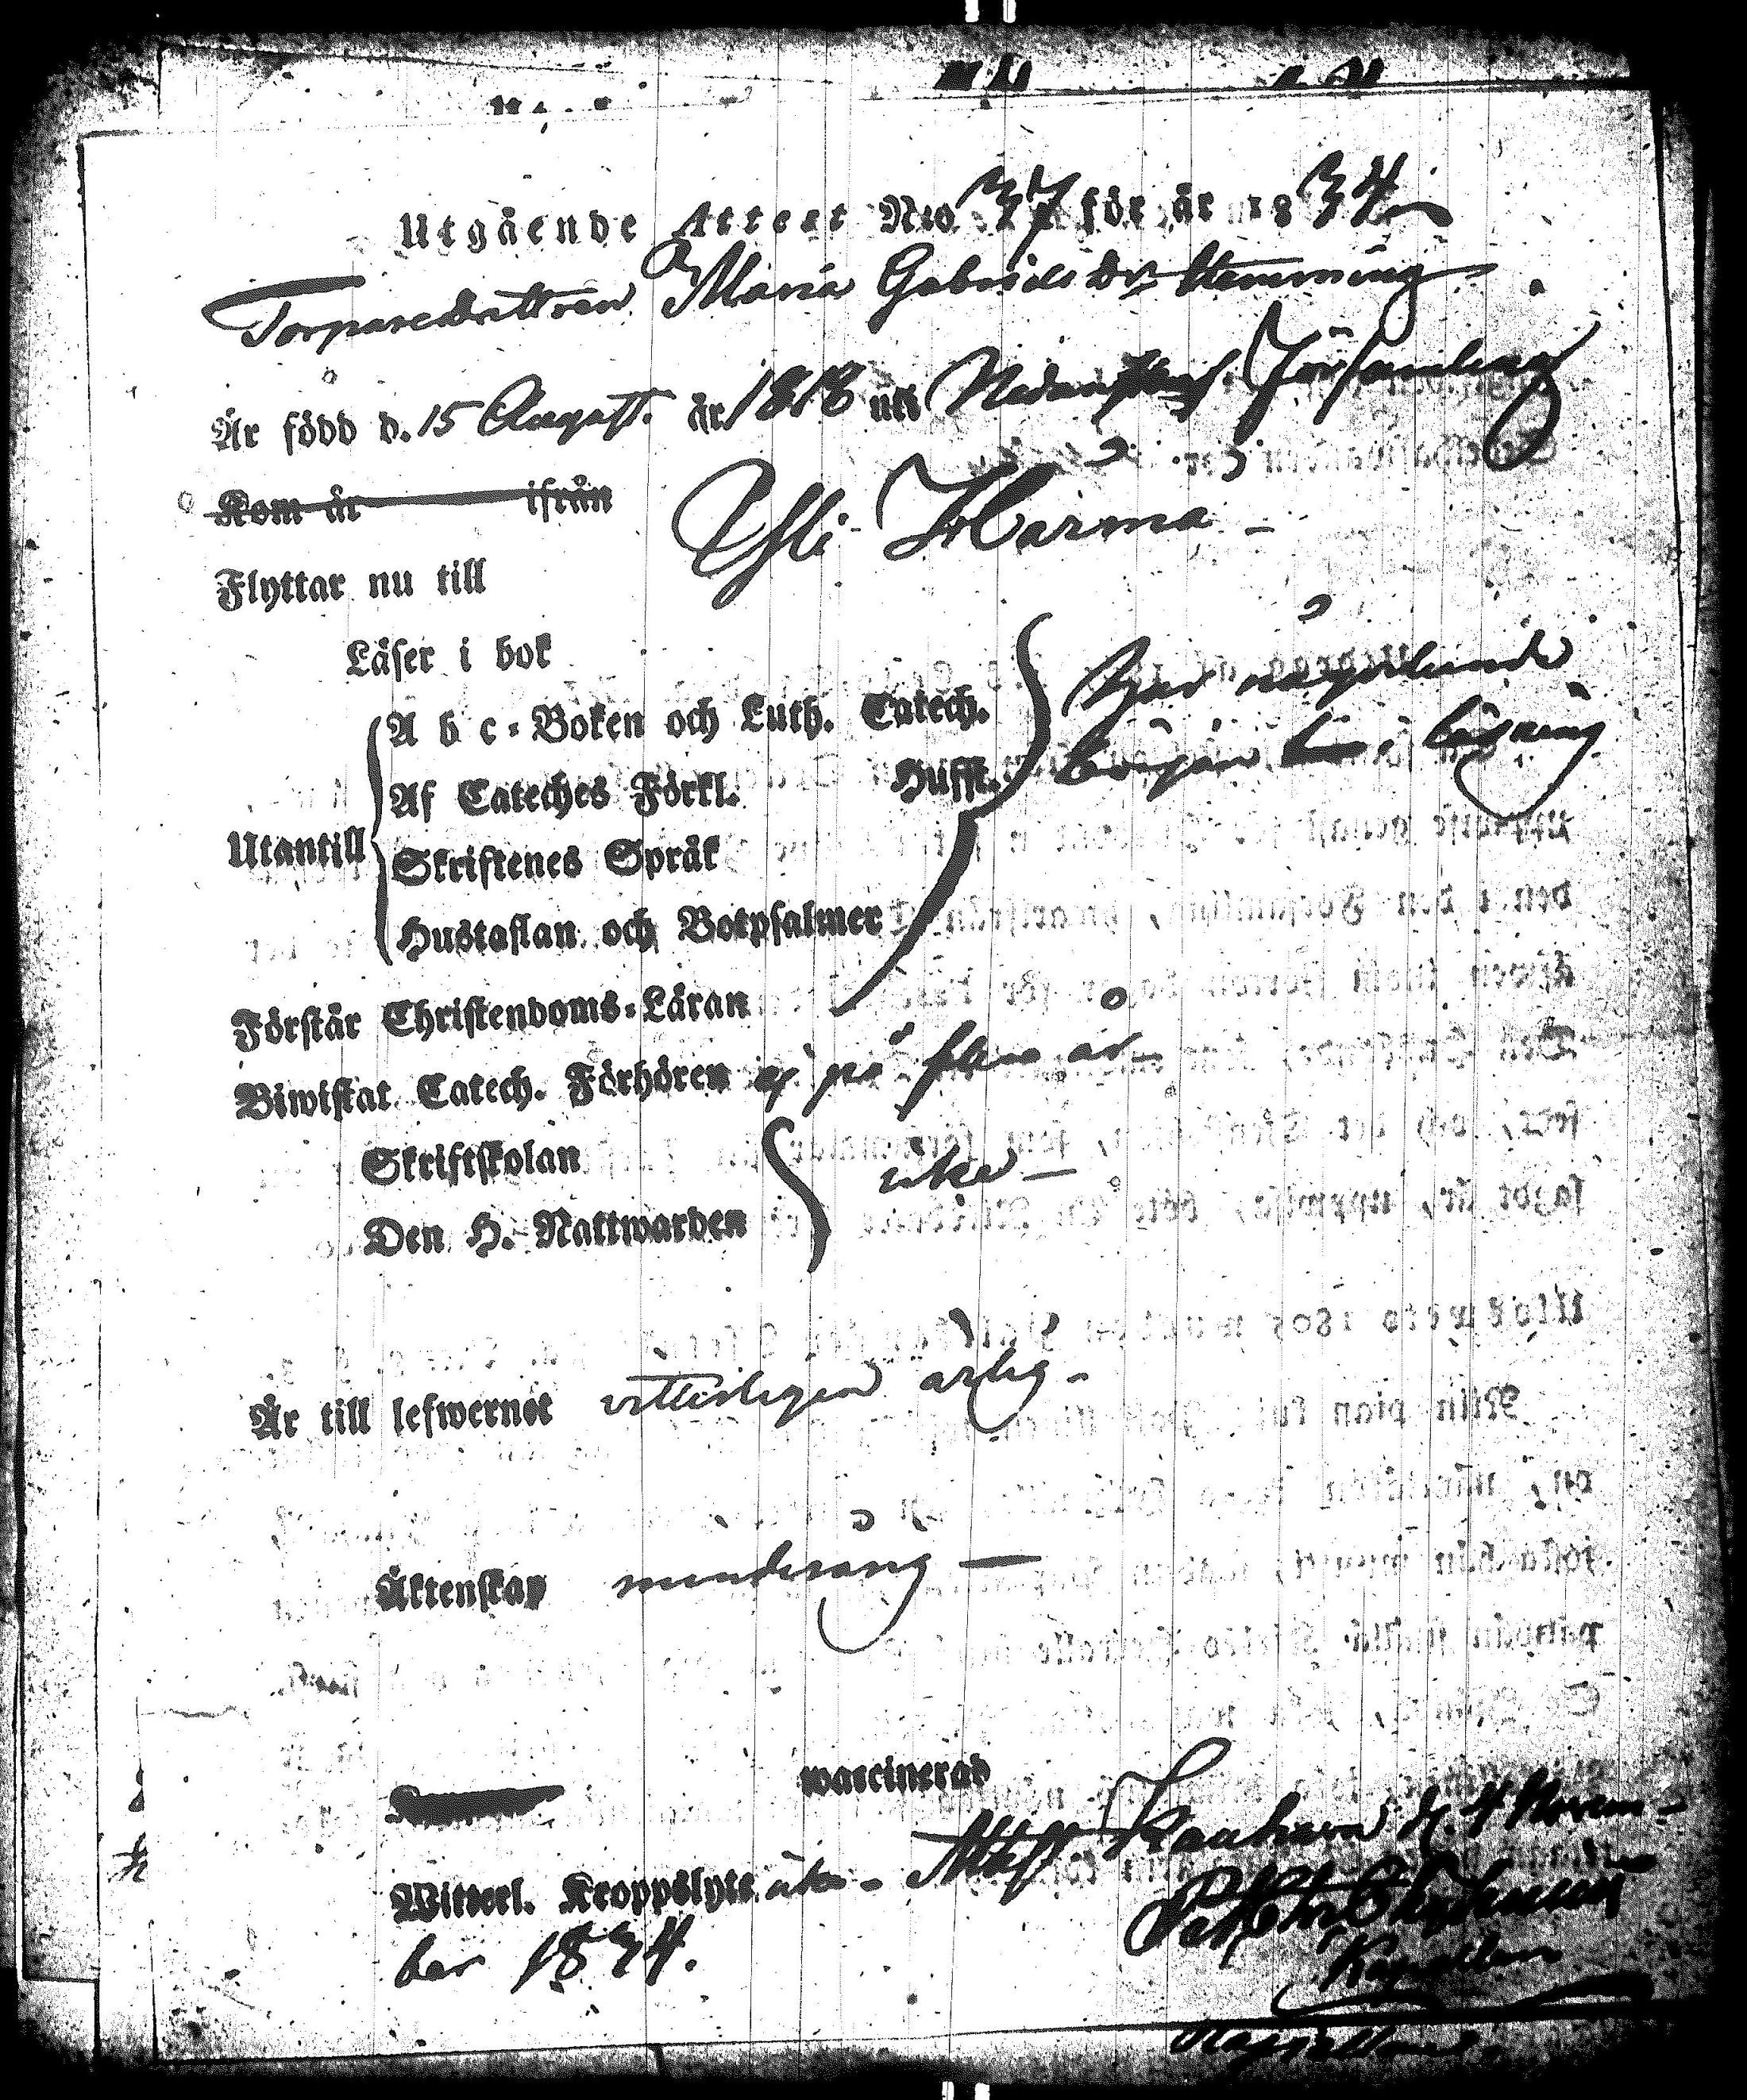 Utgående Attest Nro 37 för år 1834
Torparedottren Maria Gabriels dr Hemming
Är född d. 15 August. år 1818 uti Församling
Kom år ifrån
Ylli Härmä
Flyttar nu till
Läser i bok
Utantill
A b c-Boken och Luth. Catech.
Af Cateches Förkl. Husst.
Skriftenes Språk
Hustaflan och Botpsalmer
Har någorlunda
början i läsning
Förstår Christendoms-Läran
Biwistat Catech. Förhören ej på flere år
Skriftskolan
Den H. Nattwarden
icke
Är till lefwernet vitterligen ärlig
Äktenskap minderårig
waccinerad
Witterl. Kroppslyte icke Attest. Kauhava d. 4 Novem-
ber 1834.
Kapellan
Kapellan